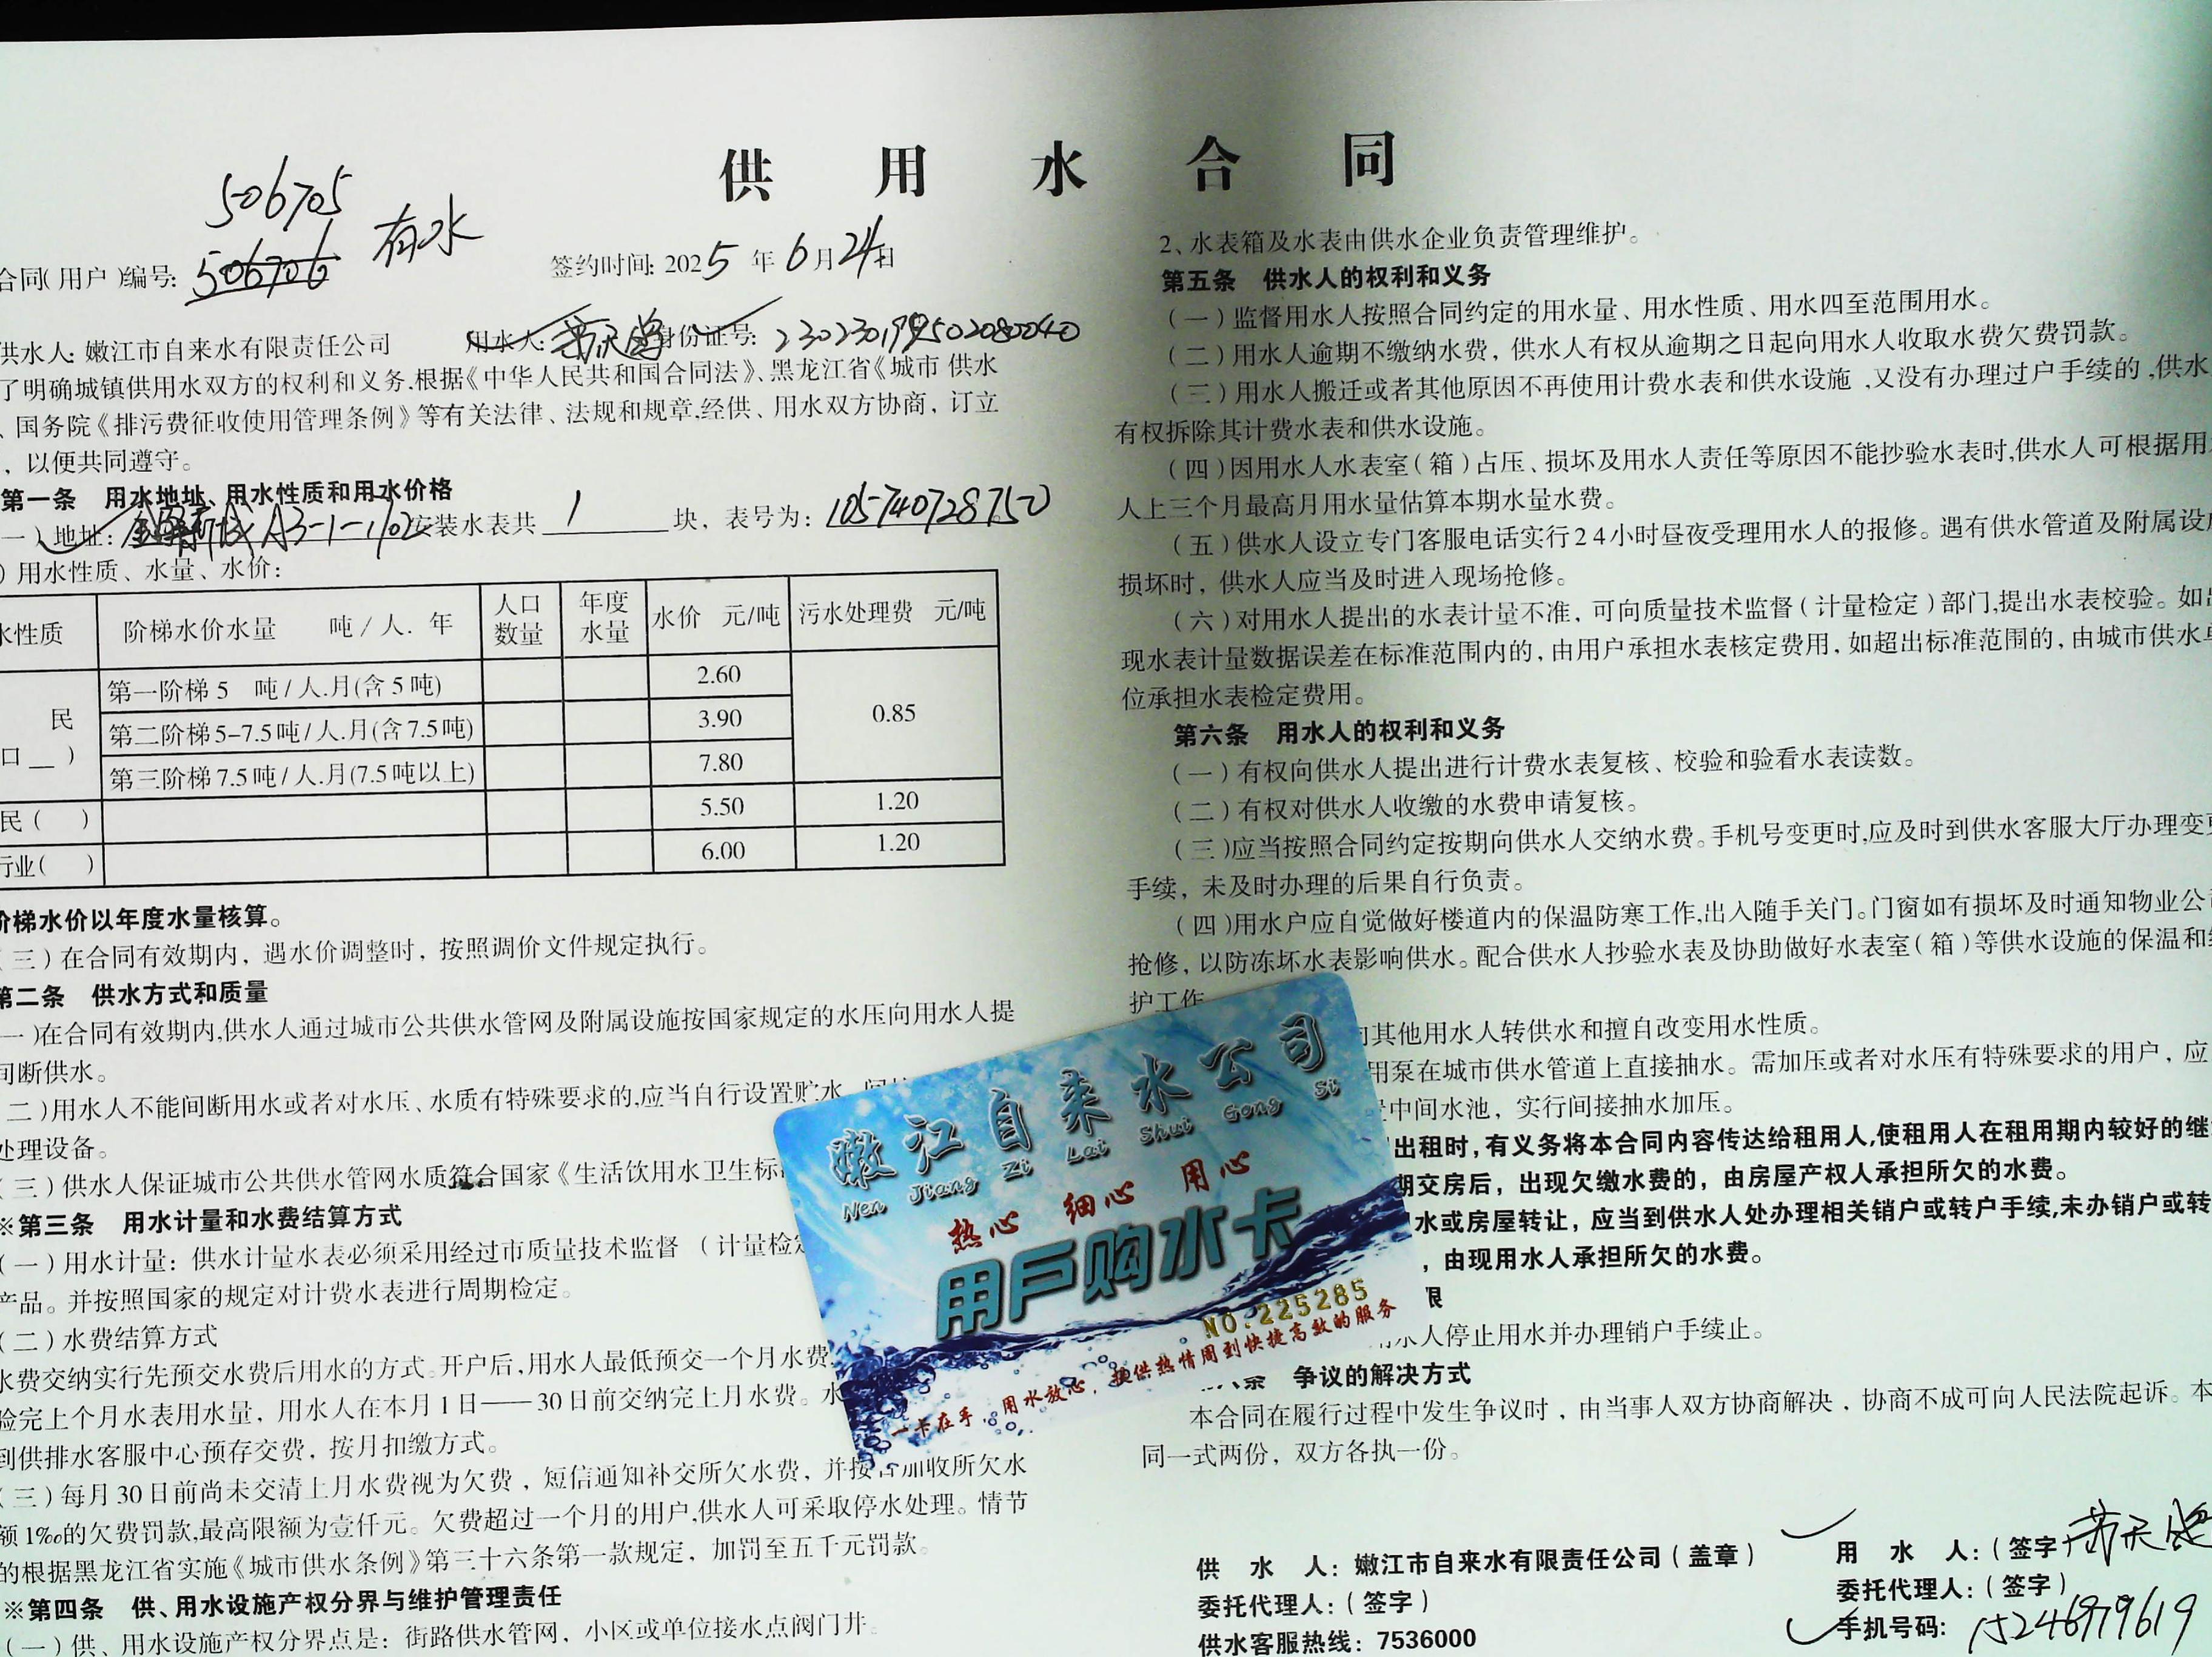 供用水合同
506705
有水
合同(用户)编号: 506706
签约时间: 2025年6月24日
供水人: 嫩江市自来水有限责任公司 用水人: 身份证号: 230230199502080040
了明确城镇供用水双方的权利和义务.根据《中华人民共和国合同法》、黑龙江省《城市 供水
、国务院《排污费征收使用管理条例》等有关法律、法规和规章,经供、用水双方协商，订立
，以便共同遵守。
第一条 用水地址、用水性质和用水价格
一)地址: A3-1-1102安装水表共 1 块，表号为: 105740728750
)用水性质、水量、水价:
水性质 阶梯水价水量 吨/人. 年 人口数量 年度水量 水价 元/吨 污水处理费 元/吨
民 口__) 第一阶梯5 吨/人.月(含5吨) 2.60 0.85
第二阶梯5-7.5吨/人.月(含7.5吨) 3.90
第三阶梯7.5吨/人.月(7.5吨以上) 7.80
民( ) 5.50 1.20
行业( ) 6.00 1.20
阶梯水价以年度水量核算。
(三)在合同有效期内，遇水价调整时，按照调价文件规定执行。
第二条 供水方式和质量
一)在合同有效期内,供水人通过城市公共供水管网及附属设施按国家规定的水压向用水人提
间断供水。
二)用水人不能间断用水或者对水压、水质有特殊要求的,应当自行设置贮水、
处理设备。
(三)供水人保证城市公共供水管网水质符合国家《生活饮用水卫生标
※第三条 用水计量和水费结算方式
(一)用水计量：供水计量水表必须采用经过市质量技术监督（计量检定
产品。并按照国家的规定对计费水表进行周期检定。
(二)水费结算方式
水费交纳实行先预交水费后用水的方式。开户后,用水人最低预交一个月水费
验完上个月水表用水量，用水人在本月1日——30日前交纳完上月水费。水
到供排水客服中心预存交费，按月扣缴方式。
(三)每月30日前尚未交清上月水费视为欠费，短信通知补交所欠水费，并按 加收所欠水
额1‰的欠费罚款,最高限额为壹仟元。欠费超过一个月的用户,供水人可采取停水处理。情节
的根据黑龙江省实施《城市供水条例》第三十六条第一款规定，加罚至五千元罚款。
※第四条 供、用水设施产权分界与维护管理责任
(一)供、用水设施产权分界点是：街路供水管网，小区或单位接水点阀门井。
2、水表箱及水表由供水企业负责管理维护。
第五条 供水人的权利和义务
(一)监督用水人按照合同约定的用水量、用水性质、用水四至范围用水。
(二)用水人逾期不缴纳水费，供水人有权从逾期之日起向用水人收取水费欠费罚款。
(三)用水人搬迁或者其他原因不再使用计费水表和供水设施,又没有办理过户手续的,供水
有权拆除其计费水表和供水设施。
(四)因用水人水表室(箱)占压、损坏及用水人责任等原因不能抄验水表时,供水人可根据用
人上三个月最高月用水量估算本期水量水费。
(五)供水人设立专门客服电话实行24小时昼夜受理用水人的报修。遇有供水管道及附属设
损坏时，供水人应当及时进入现场抢修。
(六)对用水人提出的水表计量不准，可向质量技术监督(计量检定)部门,提出水表校验。如
现水表计量数据误差在标准范围内的，由用户承担水表核定费用，如超出标准范围的，由城市供水
位承担水表检定费用。
第六条 用水人的权利和义务
(一)有权向供水人提出进行计费水表复核、校验和验看水表读数。
(二)有权对供水人收缴的水费申请复核。
(三)应当按照合同约定按期向供水人交纳水费。手机号变更时,应及时到供水客服大厅办理变更
手续，未及时办理的后果自行负责。
(四)用水户应自觉做好楼道内的保温防寒工作,出入随手关门。门窗如有损坏及时通知物业公
抢修，以防冻坏水表影响供水。配合供水人抄验水表及协助做好水表室(箱)等供水设施的保温和
护工作
向其他用水人转供水和擅自改变用水性质。
用泵在城市供水管道上直接抽水。需加压或者对水压有特殊要求的用户，应
中间水池，实行间接抽水加压。
出租时，有义务将本合同内容传达给租用人,使租用人在租用期内较好的继
期交房后，出现欠缴水费的，由房屋产权人承担所欠的水费。
水或房屋转让，应当到供水人处办理相关销户或转户手续,未办销户或转
，由现用水人承担所欠的水费。
限
水人停止用水并办理销户手续止。
条 争议的解决方式
本合同在履行过程中发生争议时，由当事人双方协商解决，协商不成可向人民法院起诉。本
同一式两份，双方各执一份。
供 水 人：嫩江市自来水有限责任公司(盖章)
委托代理人：(签字)
供水客服热线：7536000
用 水 人：(签字)
委托代理人：(签字)
手机号码：15246979619
嫩江自来水公司
Nen Jiang Zi Lai Shui Gong Si
热心 细心 用心
用户购水卡
NO.225285
一卡在手，用水放心，提供热情周到快捷高效的服务